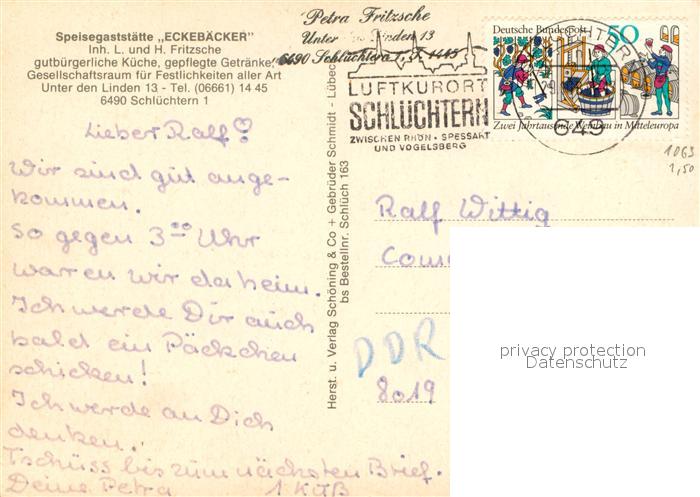 Speisegaststätte „ECKEBÄCKER"
Inh. L. und H. Fritzsche
gutbürgerliche Küche, gepflegte Getränke
Gesellschaftsraum für Festlichkeiten aller Art
Unter den Linden 13 - Tel. (06661) 14 45
6490 Schlüchtern 1
Lieber Ralf!
Wir sind gut ange-
kommen.
So gegen 3 00 Uhr
waren wir daheim.
Ich werde Dir auch
bald ein Päckchen
schicken!
Ich werde an Dich
denken.
Tschüss bis zum nächsten Brief.
Deine Petra 1 KÜB
Herst. u. Verlag Schöning & Co + Gebrüder Schmidt - Lübeck
bs Bestellnr. Schlüch 163
Petra Fritzsche
Unter den Linden 13
6490 Schlüchtern 1, T. 1445
LUFTKURORT
SCHLÜCHTERN
ZWISCHEN RHÖN - SPESSART
UND VOGELSBERG
Deutsche Bundespost 50
Zwei Jahrtausende Weinbau in Mitteleuropa
649
1063
1,50
Ralf Wittig
DDR
8019
privacy protection
Datenschutz